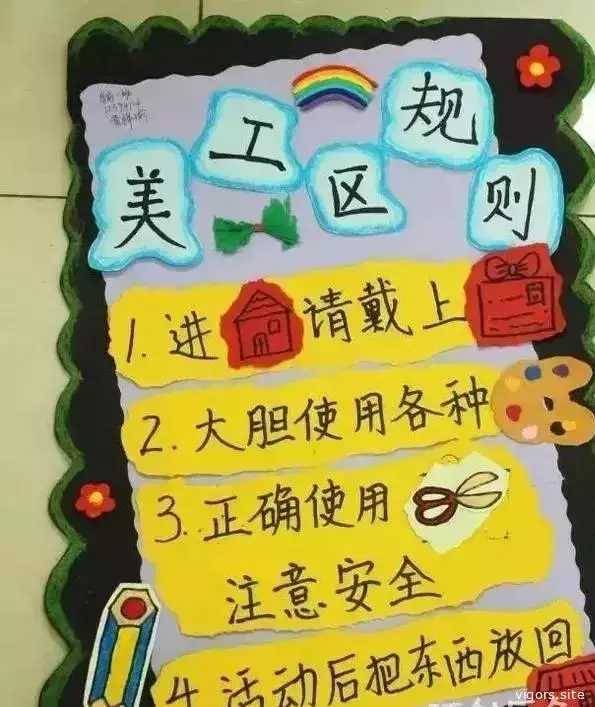 美工区规则
1.进请戴上
2.大胆使用各种
3.正确使用
注意安全
4.活动后把东西放回
vigors.site